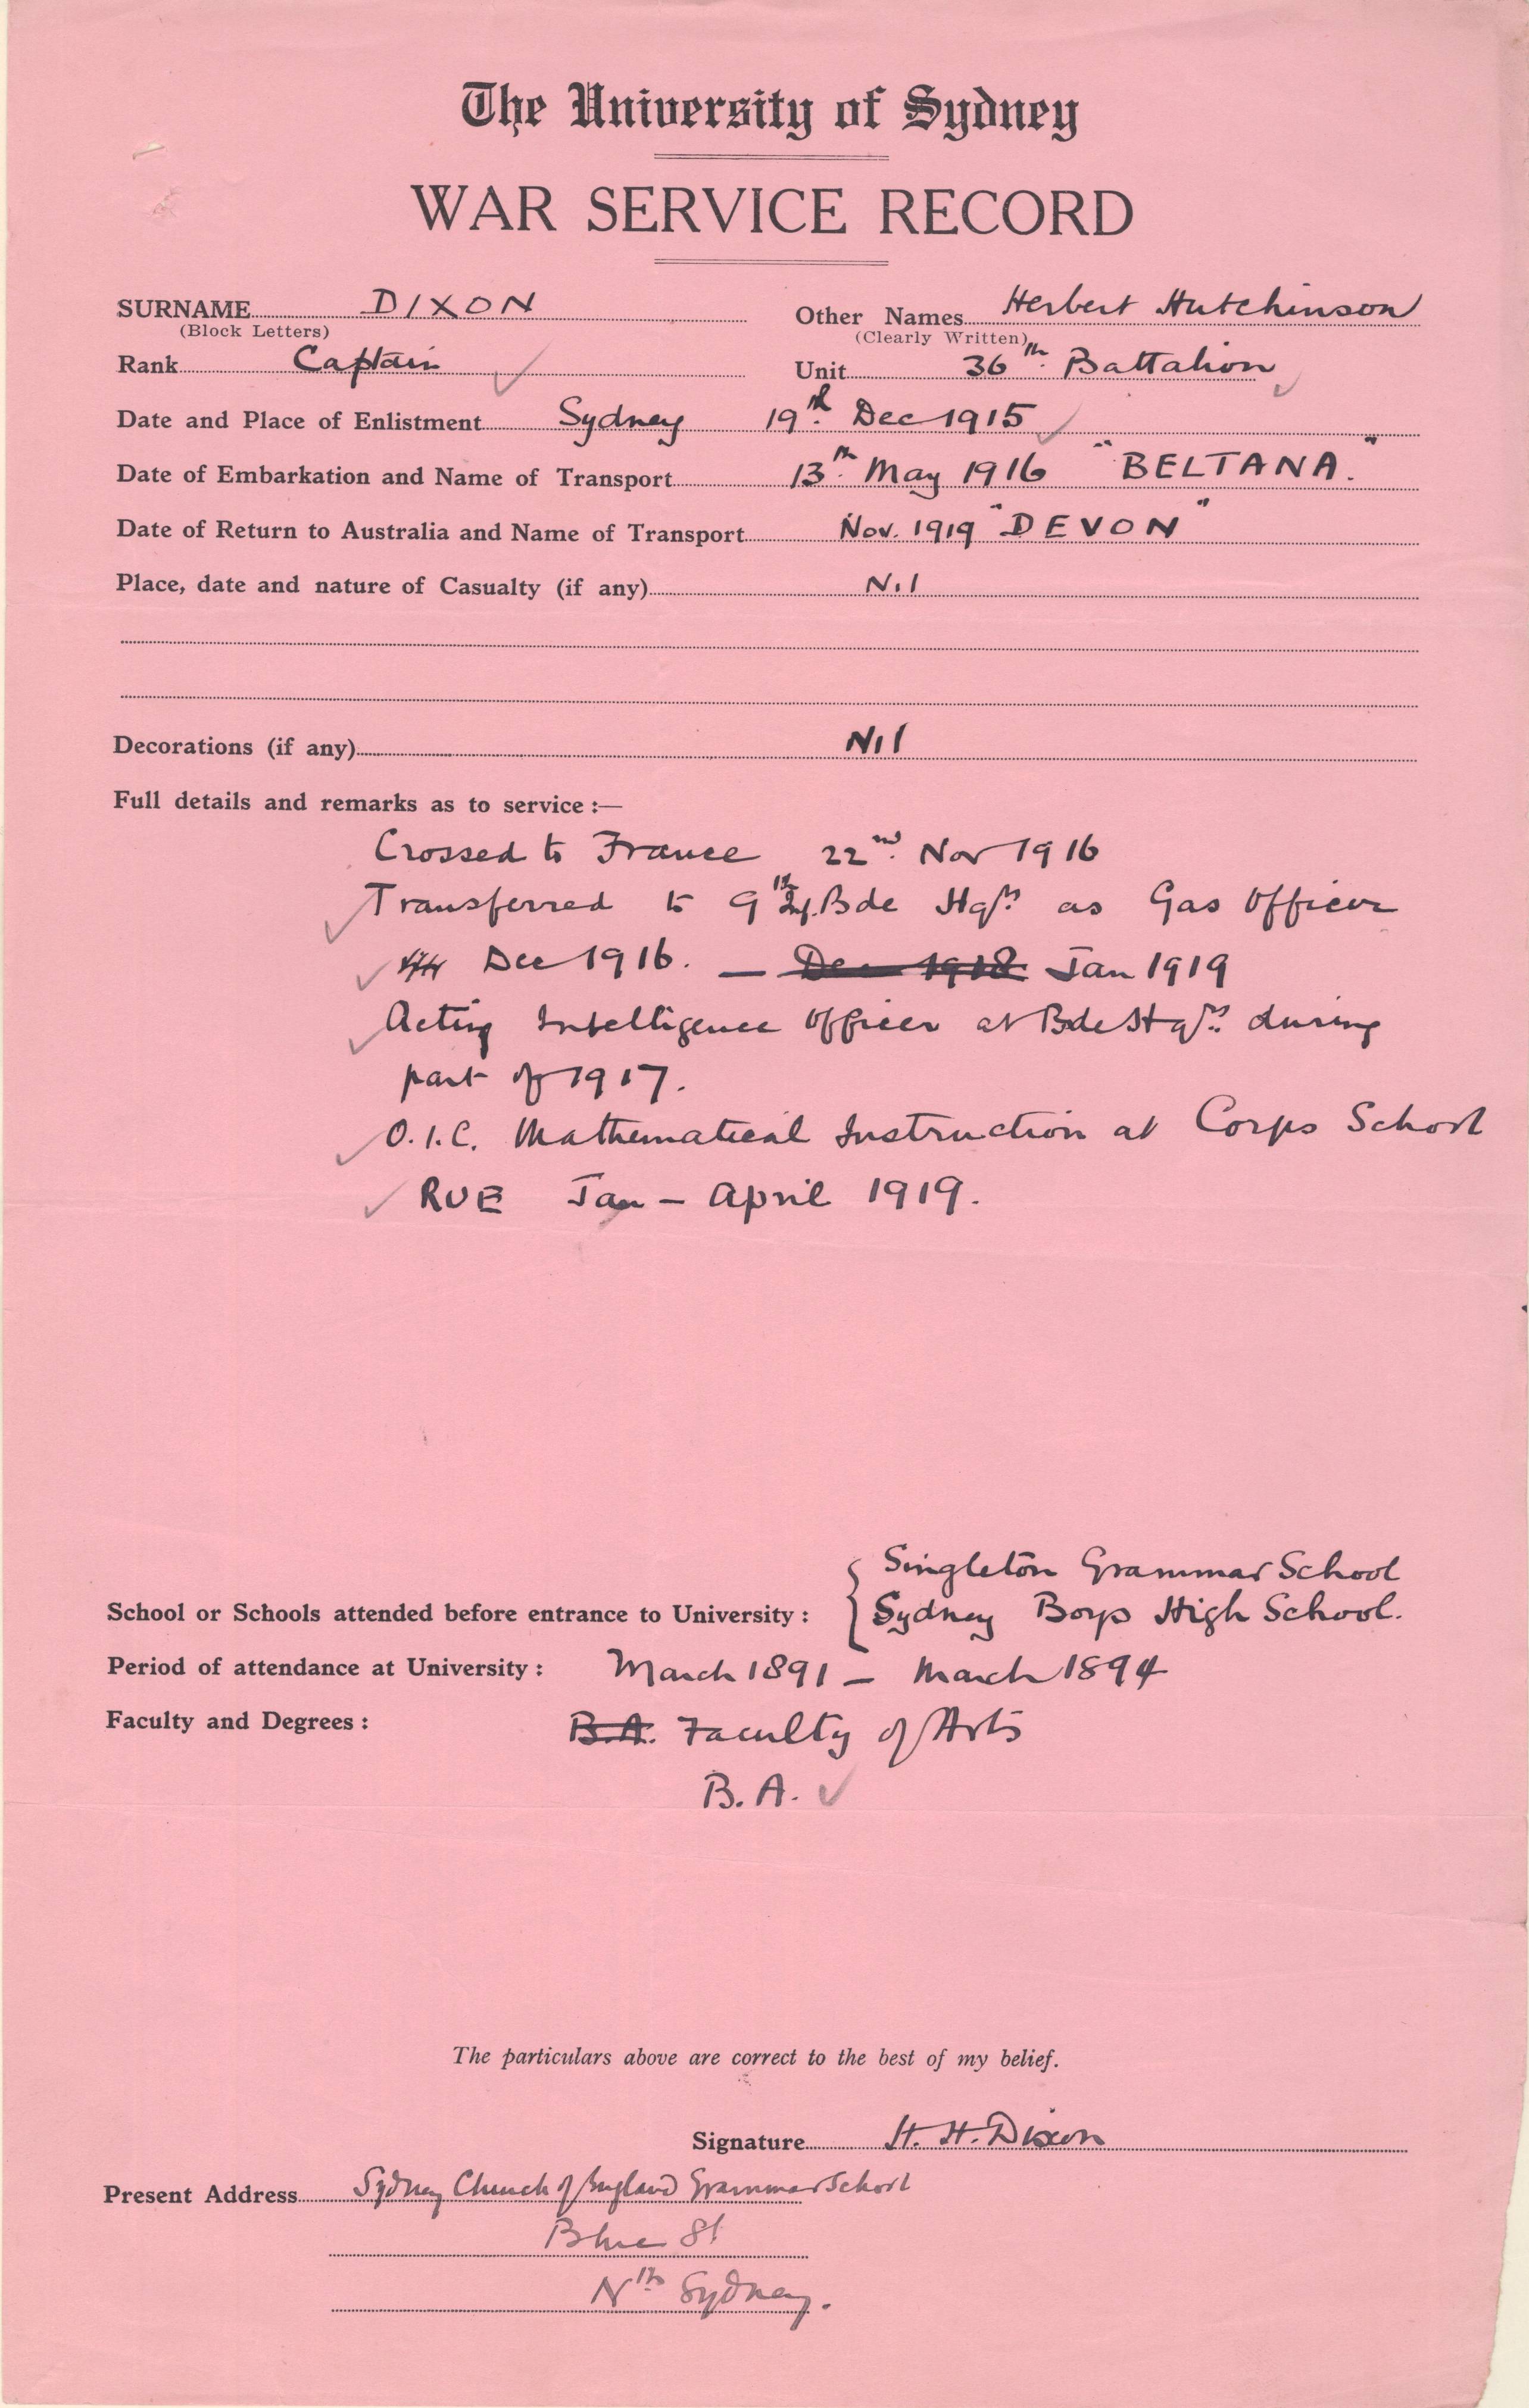 The University of Sydney
WAR SERVICE RECORD
SURNAME DIXON Other Names Herbert Hutchinson
(Block Letters) (Clearly Written)
Rank Captain Unit 36th Battalion
Date and Place of Enlistment Sydney 19th Dec 1915
Date of Embarkation and Name of Transport 13th May 1916 "BELTANA."
Date of Return to Australia and Name of Transport Nov. 1919 "DEVON"
Place, date and nature of Casualty (if any) Nil
Decorations (if any) Nil
Full details and remarks as to service :—
Crossed to France 22nd Nov 1916
Transferred to 9th Inf. Bde Hqrs as Gas Officer
Dec 1916. — Dec 1918 Jan 1919
Acting Intelligence Officer at Bde Hqrs during
part of 1917.
O.I.C. Mathematical Instruction at Corps School
RUE Jan – April 1919.
Singleton Grammar School
School or Schools attended before entrance to University : Sydney Boys High School.
Period of attendance at University : March 1891 – March 1894
Faculty and Degrees : B.A. Faculty of Arts
B.A.
The particulars above are correct to the best of my belief.
Signature H. H. Dixon
Present Address Sydney Church of England Grammar School
Blue St
Nth Sydney.